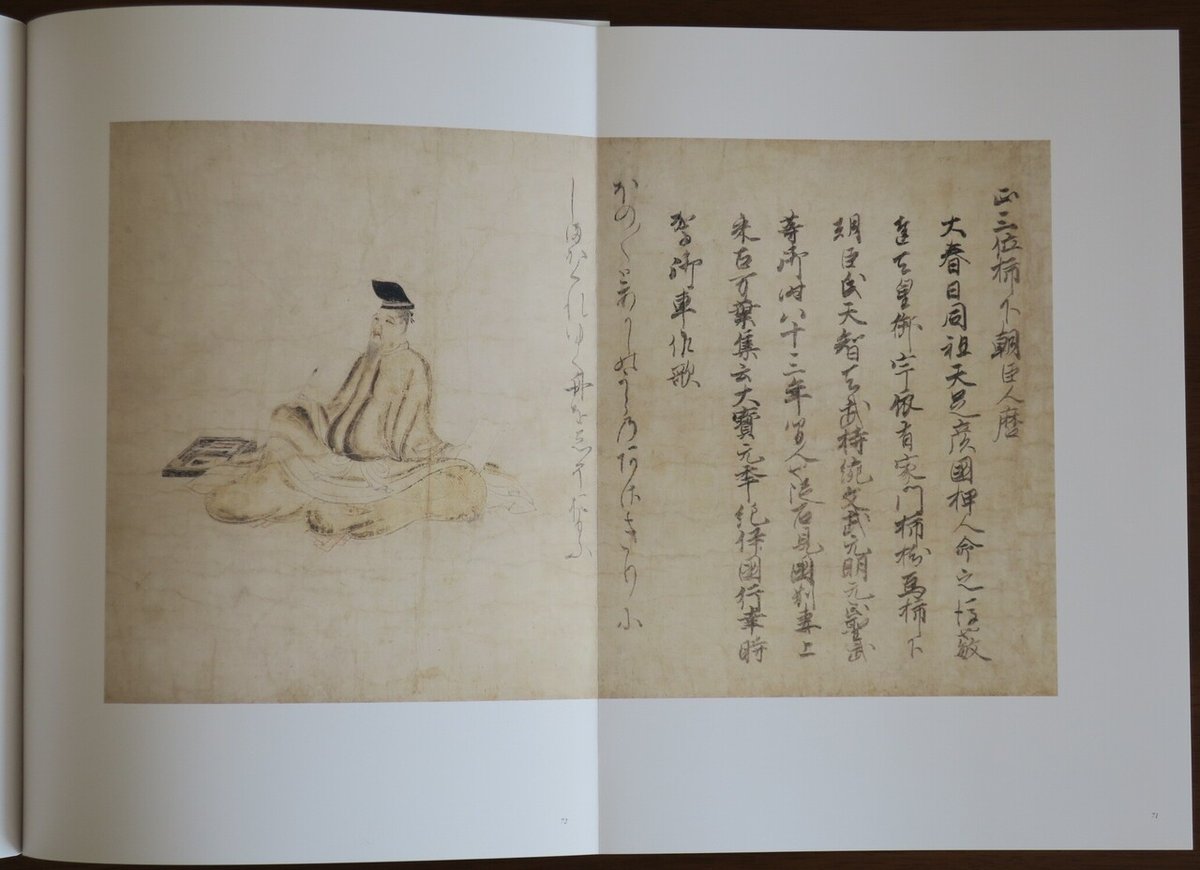 正三位柿下朝臣人麿
大春日同祖天足彦國押人命之後敏
達天皇御宇依有家門柿樹為柿下
朝臣氏天智天武持統文武元明元正聖武
等御時八十三年間人也從石見國別妻上
来古万葉集云大寶元年紀伊國行幸時
従駕御車作歌
ほの／＼とあかしのうらのあさきりに
しまかくれゆく舟をしそおもふ
72
71